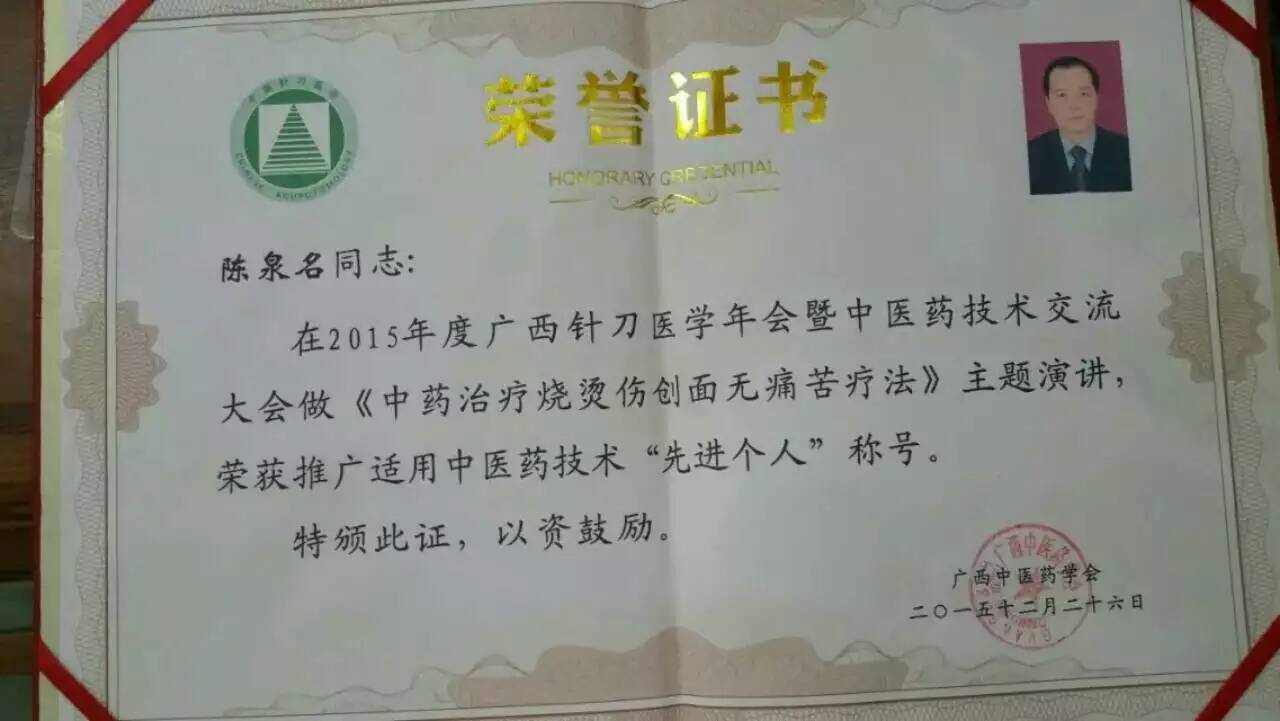 荣誉证书
HONORARY CREDENTIAL
陈泉名同志:
在2015年度广西针刀医学年会暨中医药技术交流
大会做《中药治疗烧烫伤创面无痛苦疗法》主题演讲,
荣获推广适用中医药技术“先进个人”称号。
特颁此证，以资鼓励。
广西中医药学会
二〇一五十二月二十六日